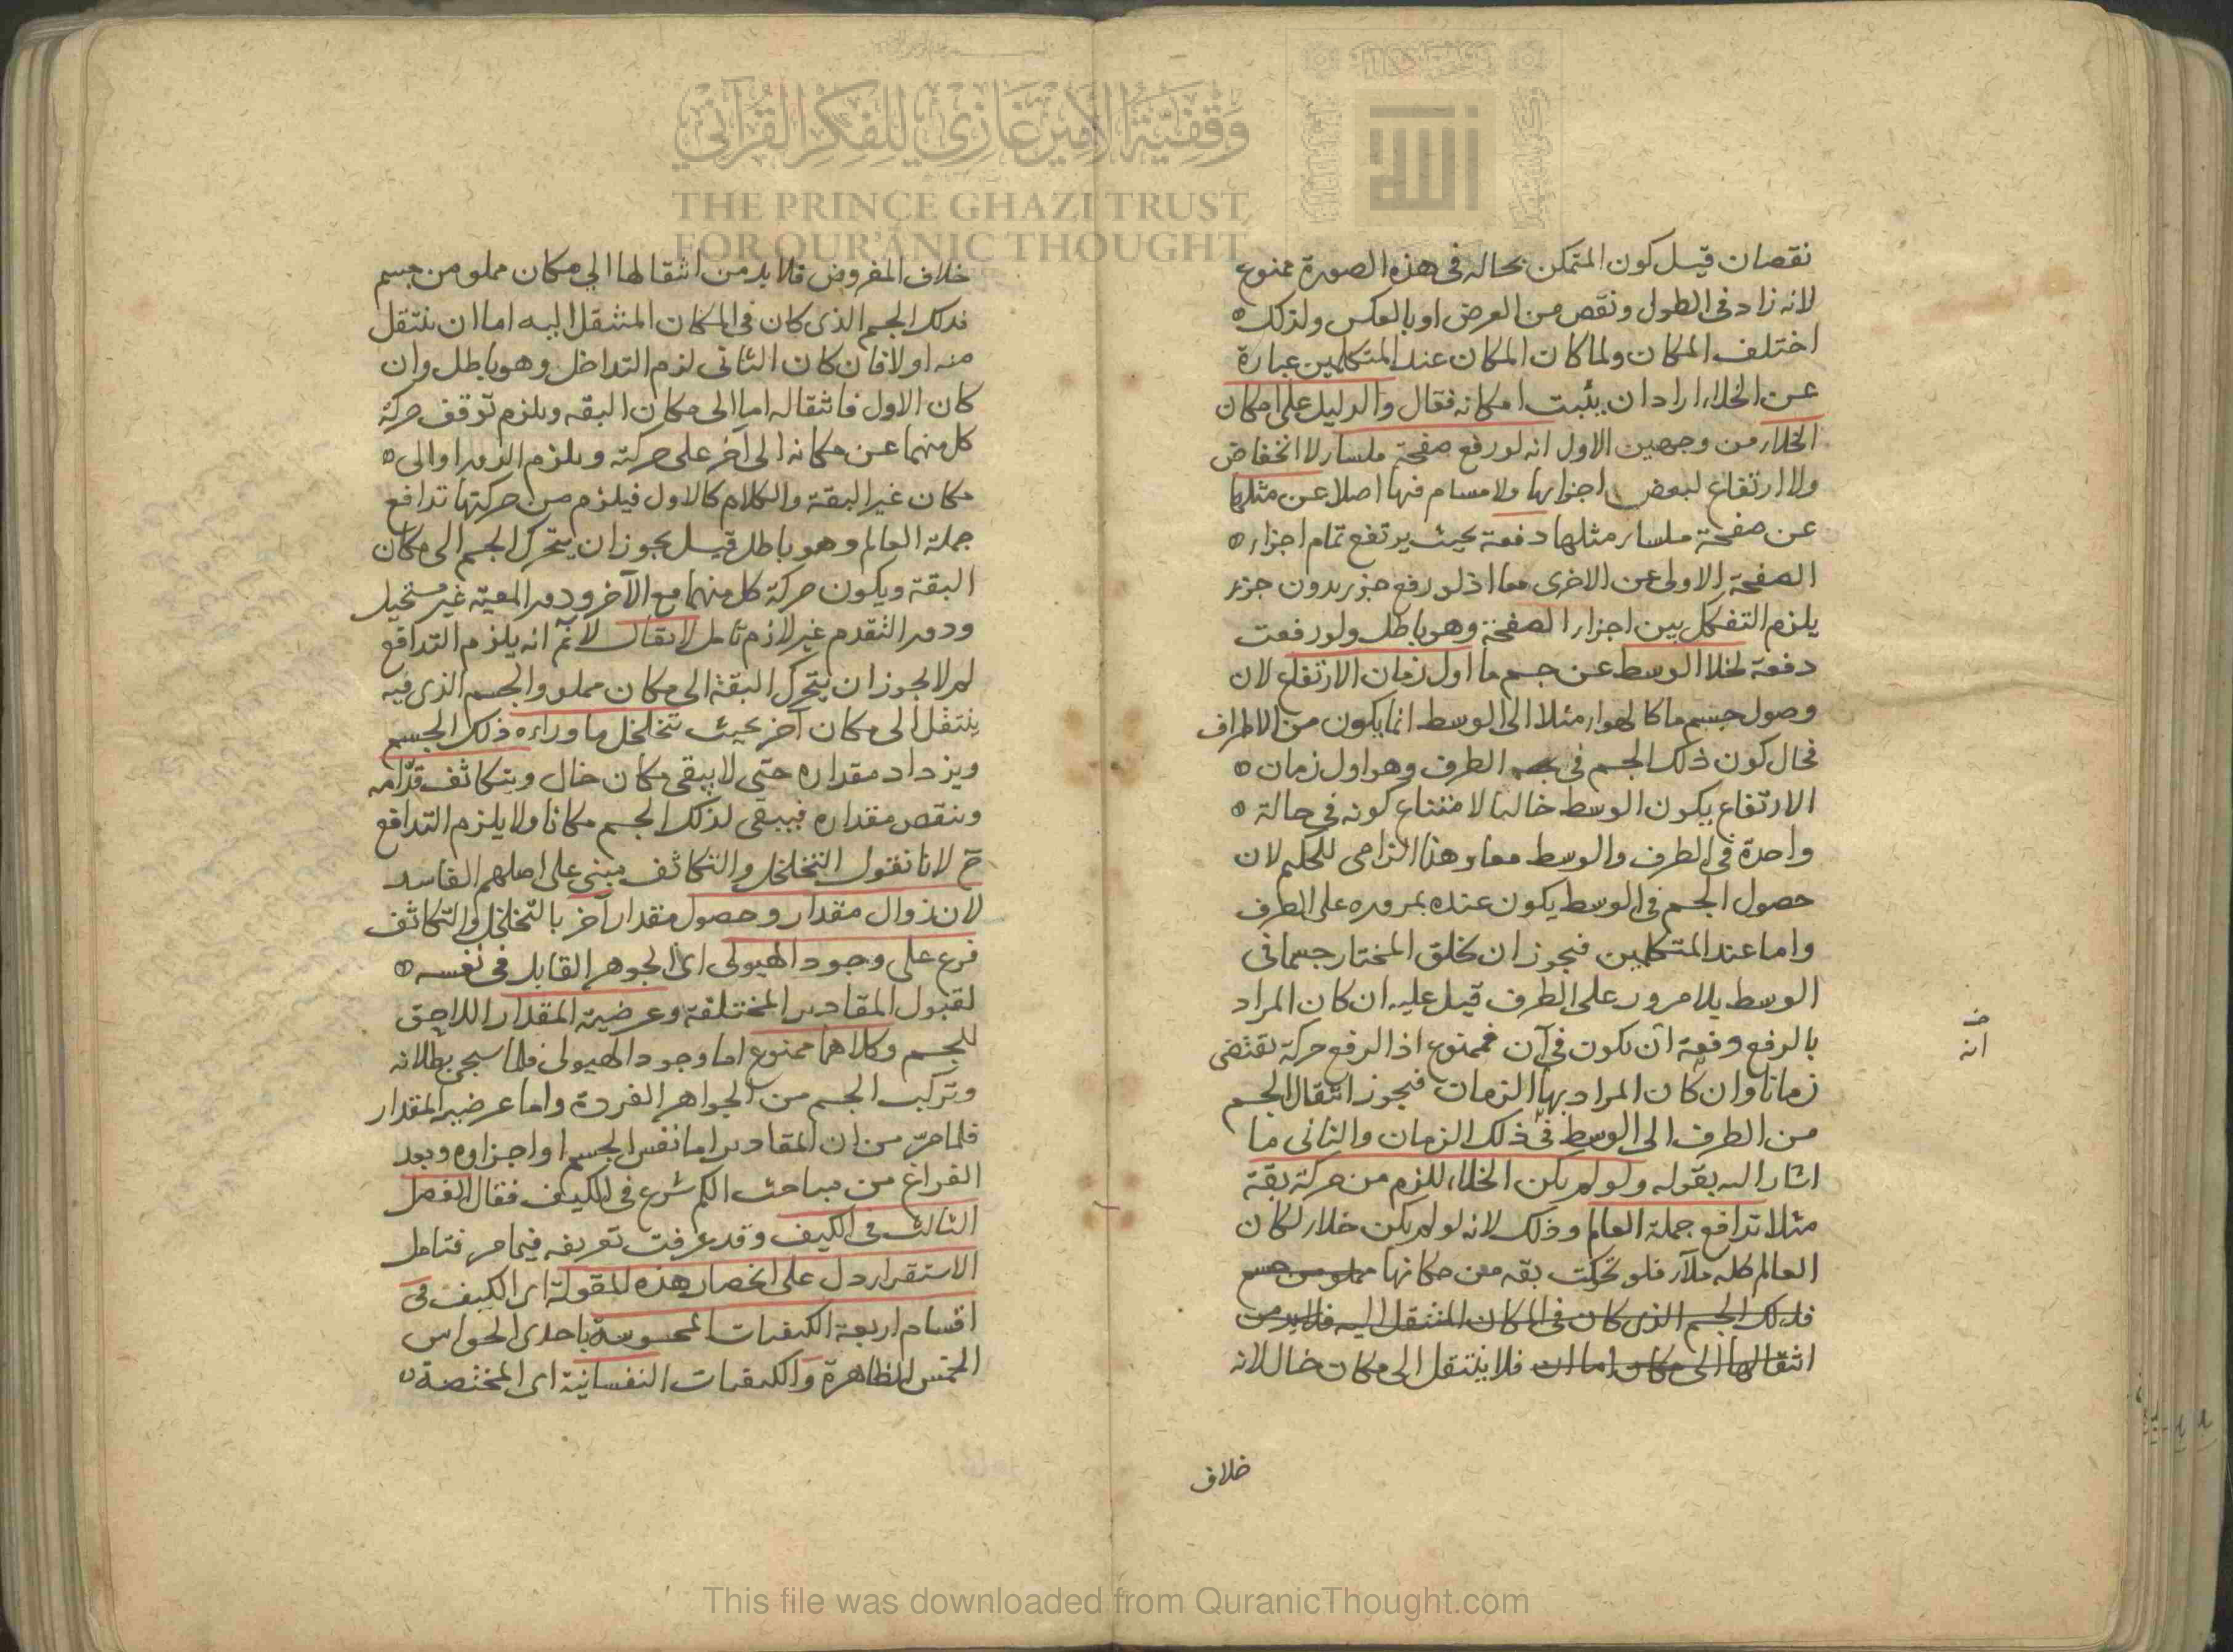 وقفية الأمير غازي للفكر القرآني
THE PRINCE GHAZI TRUST
FOR QUR'ANIC THOUGHT
الله
نقصان قيل كون المتمكن بحاله في هذه الصورة ممنوع
لانه زاد في الطول ونقص من العرض او بالعكس ولذلك
اختلف المكان ولما كان المكان عند المتكلمين عبارة
عن الخلاء اراد ان يثبت امكانه فقال والدليل على امكان
الخلاء من وجهين الاول انه لو رفع صفحة ملساء لا انخفاض
ولا ارتفاع لبعض اجزائها ولا مسام فيها اصلا عن مثلها
عن صفحة ملساء مثلها دفعة بحيث يرتفع تمام اجزاء
الصفحة الاولى عن الاخرى معا اذ لو رفع جزء بدون جزء
يلزم التفكك بين اجزاء الصفحة وهو باطل ولو رفعت
دفعة لخلا الوسط عن جسم ما اول زمان الارتفاع لان
وصول جسم ما كالهواء مثلا الى الوسط انما يكون من الاطراف
فحال كون ذلك الجسم في الطرف وهو اول زمان
الارتفاع يكون الوسط خاليا لامتناع كونه في حالة
واحدة في الطرف والوسط معا وهذا الزامي للحكم لان
حصول الجسم في الوسط يكون عنده بمروره على الطرف
واما عند المتكلمين فيجوز ان يخلق المختار جسما في
الوسط بلا مرور على الطرف قيل عليه ان كان المراد
بالرفع دفعة ان يكون في آن فممنوع اذ الرفع حركة تقتضي
زمانا وان كان المراد بها الزمان فيجوز انتقال الجسم
من الطرف الى الوسط في ذلك الزمان والثاني ما
اشار اليه بقوله ولو لم يكن الخلاء للزم من حركة بقة
مثلا تدافع جملة العالم وذلك لانه لو لم يكن خلاء لكان
العالم كله ملآء فلو تحركت بقة من مكانها مملو من جسم
فذلك الجسم الذي كان في المكان المنتقل اليه فلابد من
انتقالها الى مكان اما ان فلا ينتقل الى مكان خال لانه
انه
خلاف
خلاف المفروض فلا بد من انتقالها الى مكان مملو من جسم
فذلك الجسم الذي كان في المكان المنتقل اليه اما ان ينتقل
منه او لا فان كان الثاني لزم التداخل وهو باطل وان
كان الاول فانتقاله اما الى مكان البقه ويلزم توقف حركة
كل منهما عن مكانه الى آخر على حركته ويلزم الدور او الى
مكان غير البقة والكلام كالاول فيلزم من حركتها تدافع
جملة العالم وهو باطل قيل يجوز ان يتحرك الجسم الى مكان
البقة ويكون حركة كل منهما مع الآخر ودور المعية غير مستحيل
ودور التقدم غير لازم تامل لا يقال لا نم انه يلزم التدافع
لم لا يجوز ان يتحرك البقة الى مكان مملو والجسم الذي فيه
ينتقل الى مكان آخر بحيث يتخلخل ما وراءه ذلك الجسم
ويزداد مقداره حتى لا يبقى مكان خال ويتكاثف قدامه
وينقص مقداره فيبقى لذلك الجسم مكانا ولا يلزم التدافع
ح لانا نقول التخلخل والتكاثف مبني على اصلهم الفاسد
لان زوال مقدار وحصول مقدار آخر بالتخلخل والتكاثف
فرع على وجود الهيولى اى الجوهر القابل في نفسه
لقبول المقادير المختلفة وعرضية المقدار اللاحق
للجسم وكلاهما ممنوع اما وجود الهيولى فلما سيجئ بطلانه
وتركب الجسم من الجواهر الفردة واما عرضية المقدار
فلما مر من ان المقادير اما نفس الجسم او اجزاوه وبعد
الفراغ من مباحث الكم شرع في الكيف فقال الفصل
الثالث في الكيف وقد عرفت تعريفه فيما مر فتامل
الاستقراء دل على انحصار هذه المقولة اى الكيف في
اقسام اربعة الكيفيات المحسوسة باحدى الحواس
الخمس الظاهرة والكيفيات النفسانية اى المختصة
This file was downloaded from QuranicThought.com